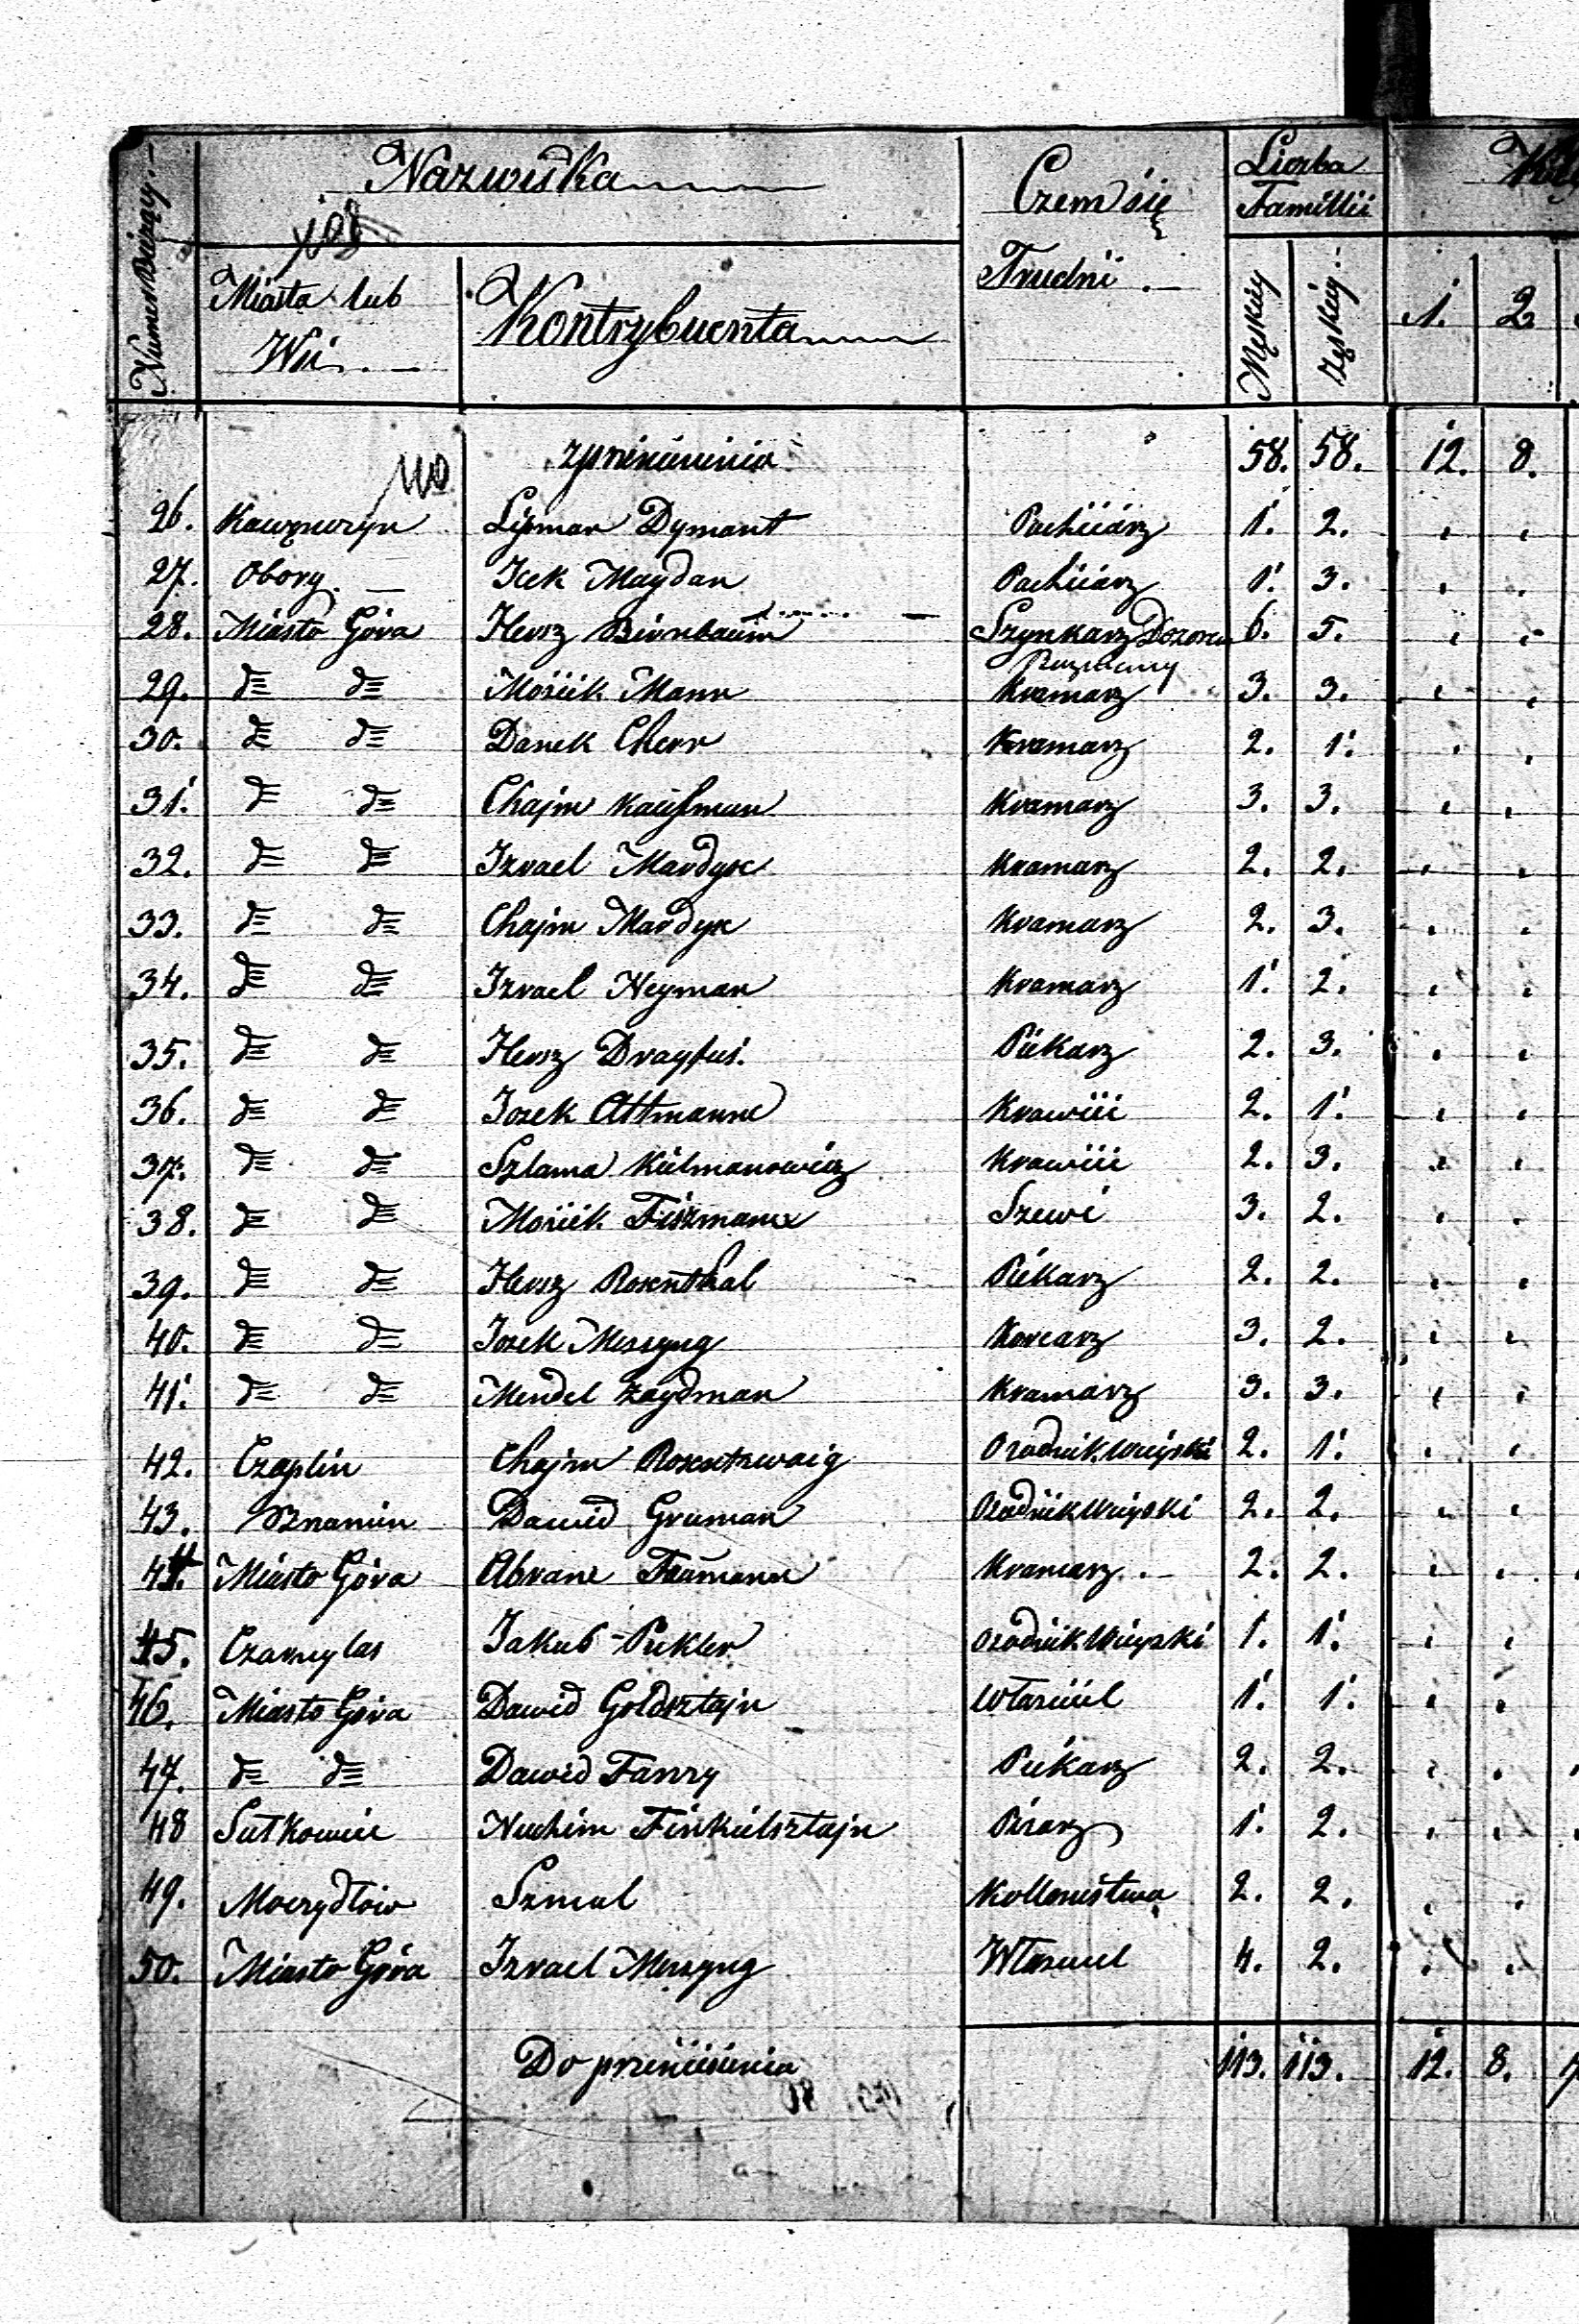 Numer Bieżący.
Nazwiska
Czem się
Trudni
Liczba
Familii
108
Miasta lub
Wsi
Kontrybuenta
Męskiéy
Żeńskiéy
1. 2.
110
z przeniesienia 58. 58. 12. 8.
26. Kawęnczyn Lipman Dymant Pachciarz 1. 2.
27. Obory. Icek Maydan Pachciarz 1. 3.
28. Miasto Góra Hersz Birnbaum Szynkarz Dozorca 6. 5.
29. d d Mosiek Mann Kramarz 3. 3.
30. d d Danek Cherr Kramarz 2. 1.
31. d d Chajm Kaufman Kramarz 3. 3.
32. d d Izrael Mardyx Kramarz 2. 2.
33. d d Chajm Mardyx Kramarz 2. 3.
34. d d Izrael Neyman Kramarz 1. 2.
35. d d Hersz Drayfus. Piekarz 2. 3.
36. d d Josek Altmann Krawiec 2. 1.
37. d d Szlama Kielmanowicz Krawiec 2. 3.
38. d d Mosiek Fiszmann Szewc 3. 2.
39. d d Hersz Rosenthal Piekarz 2. 2.
40. d d Josek Messyng Korcarz 3. 2.
41. d d Mendel Zaydman Kramarz 3. 3.
42. Czaplin Chajm Rosentzwaig Osadnik Wieyski 2. 1.
43. Dawid Gruman Osadnik Wieyski 2. 2.
44. Miasto Góra Abram Kramarz 2. 2.
45. Czarnylas Jakub Pekler Osadnik Wieyski 1. 1.
46. Miasto Góra Dawid Goldsztajn Właściciel 1. 1.
47. d d Dawid Fanzy Piekarz 2. 2.
48 Sułkowice Nuchim Finkielsztajn Pisarz 1. 2.
49. Moczydłow Szmul Kollonistwa 2. 2.
50. Miasto Góra Izrael Messyng Właściciel 4. 2.
Do przeniesienia 113. 113. 12. 8.